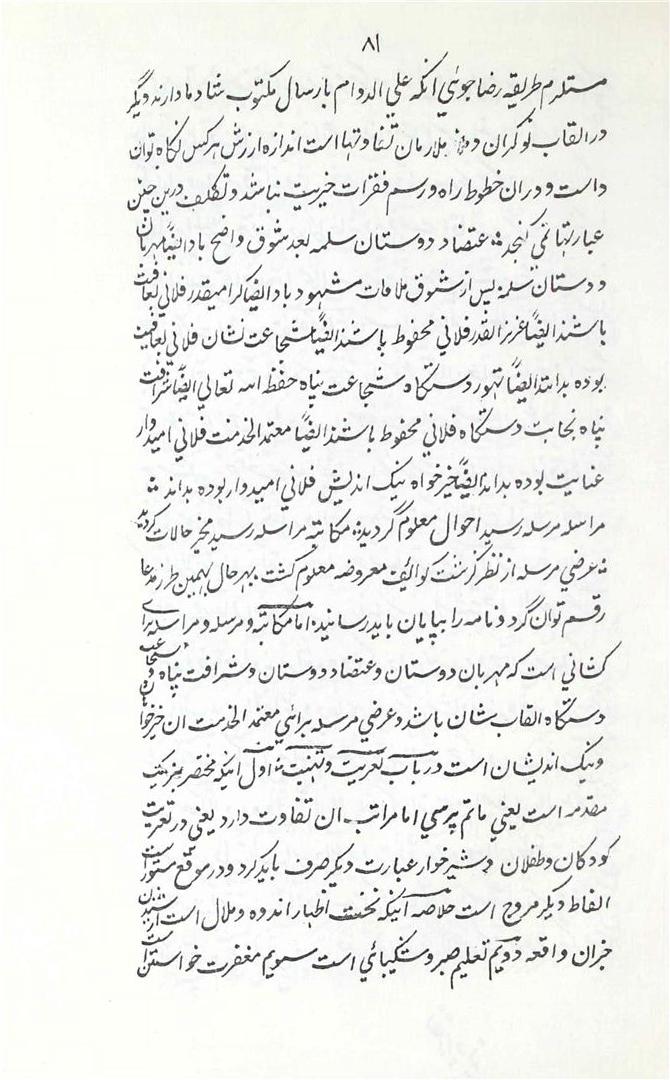 ۸۱
مستلزم طریقه رضا جوئی انکه علی الدوام بارسال مکتوب شاد ما دارند دیگر
در القاب نوکران و ملازمان تفاوتها است اندازه ارزش هر کس نگاه توان
داست و دران خطوط راه و رسم فقرات خیریت نباشد و تکلف درین چنین
عبارتها نمی کنجد عتضاد دوستان سلمه بعد شوق واضح باد ایضاً مهربان
دوستان سلمه پس از شوق ملاقات مشهود باد ایضا کرامیقدر فلانی بعافیت
باشند ایضاً عزیز القدر فلانی محفوظ باشند ایضاً شجاعت نشان فلانی بعافیت
بوده بدانند ایضاً تهور دستکاه شجاعت پناه حفظه الله تعالی ایضاً شرافت
پناه نجابت دستکاه فلانی محفوظ باشند ایضاً معتمد الخدمت فلانی امیدوار
عنایت بوده بداند ایضاً خیر خواه نیک اندیش فلانی امیدوار بوده بداند
مراسله مرسله رسید احوال معلوم گردید مکاتبه مراسله رسید مخبر حالات کردید
عرضی مرسله از نظر گزشت کوائف معروضه معلوم کشت بهر حال بهمین طرز مدعا
رقم توان گرد و نامه را بپایان باید رسانید اما مکاتبه و مرسله و مراسله برای
کسانی است که مهربان دوستان و عتضاد دوستان و شرافت پناه و شجاعت
دستکاه القاب شان باشد و عرضی مرسله برائی معتمد الخدمت ان خیر خواهان
و نیک اندیشان است در باب تعزیت و تهنیت اول اینکه مختصر بر یک
مقدمه است یعنی ماتم پرسی اما مراتب ان تفاوت دارد یعنی در تعزیت
کودکان و طفلان و شیر خوار عبارت دیکر صرف باید کرد و در موقع مستورات
الفاظ دیکر مروج است خلاصه اینکه نخست اظهار اندوه و ملال است از شنیدن
خبر ان واقعه دویم تعلیم صبر و شکیبائی است سویم مغفرت خواستن است